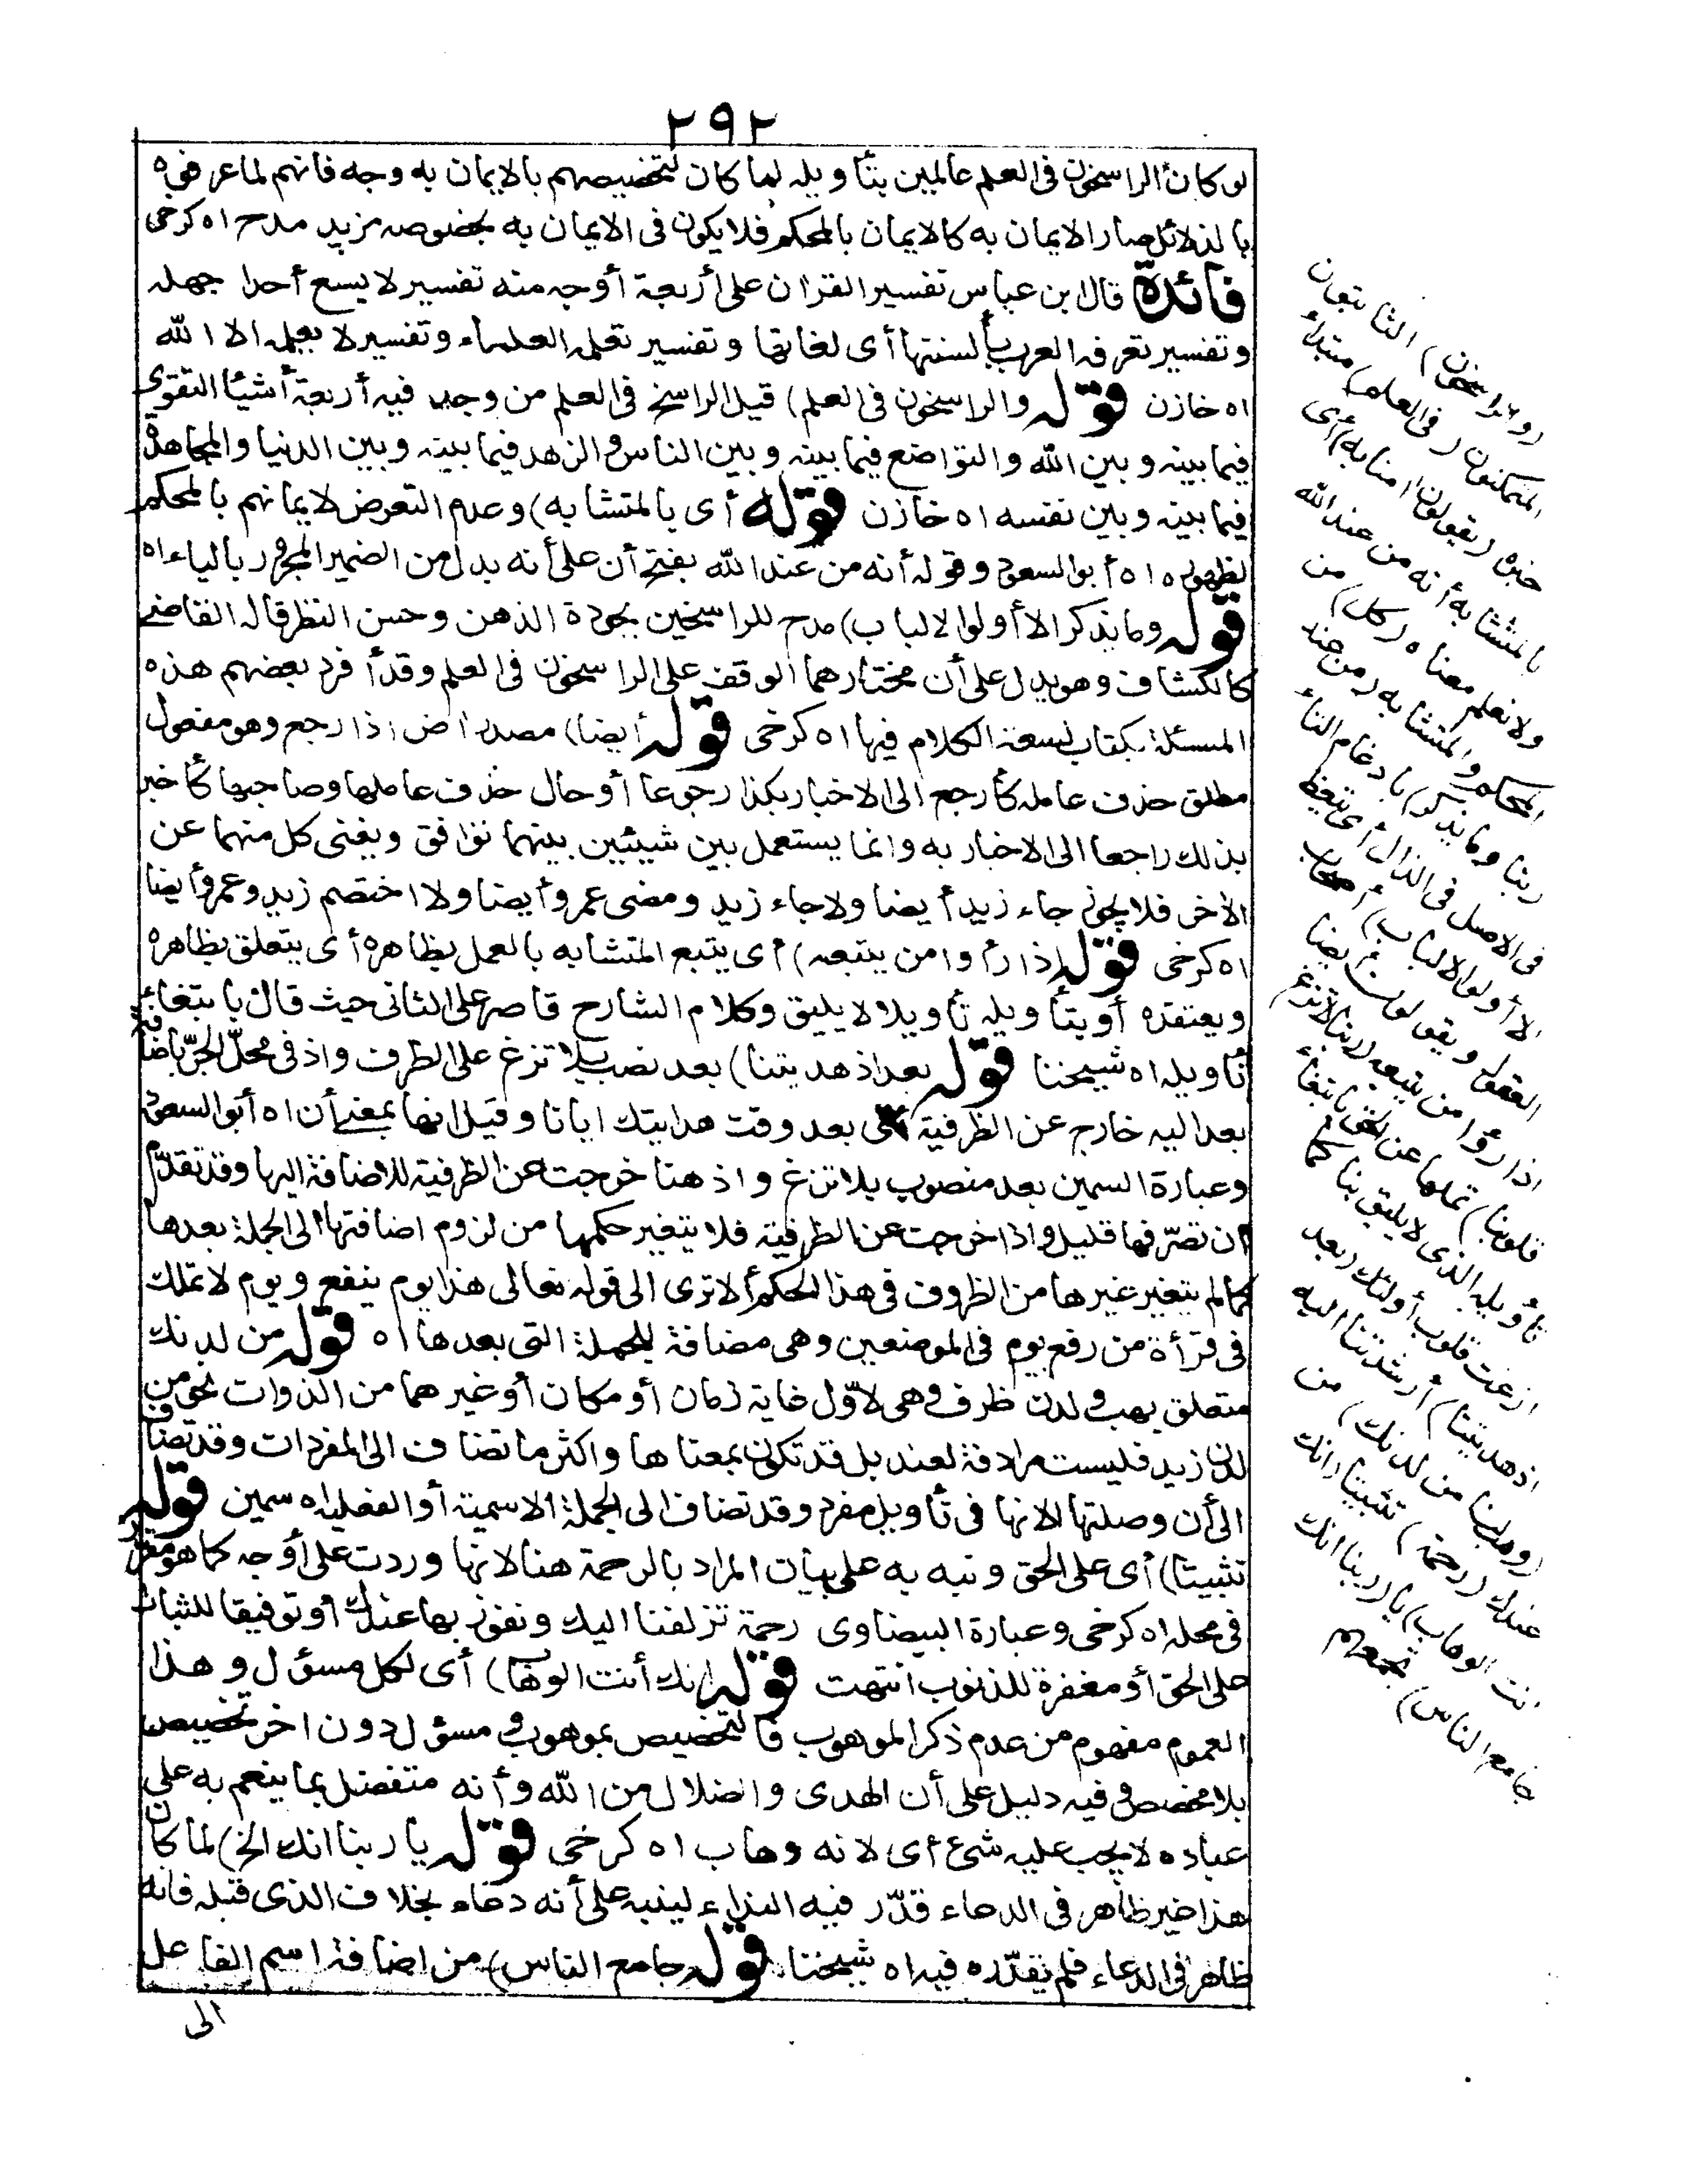 ٢٩٢
لو كان الراسخون فى العلم عالمين بتأويله لما كان لتخصيصهم بالايمان به وجه فانهم لما عرفوه
بالدلائل صار الايمان به كالايمان بالمحكم فلا يكون فى الايمان به بخصوصه مزيد مدح اه كرخى
فائدة قال ابن عباس تفسير القران على أربعة أوجه منه تفسير لا يسع أحدا جهله
وتفسير تعرفه العرب بألسنتها أى لغاتها وتفسير تعلمه العلماء وتفسير لا يعلمه الا الله
اه خازن قوله والراسخون فى العلم) قيل الراسخ فى العلم من وجد فيه أربعة أشيا التقوى
فيما بينه وبين الله والتواضع فيما بينه وبين الناس والزهد فيما بينه وبين الدنيا والمجاهدة
فيما بينه وبين نفسه اه خازن قوله أى بالمتشابه) وعدم التعرض لايمانهم بالمحكم
لظهوره اه أبو السعود وقوله أنه من عند الله بفتح أن على أنه بدل من الضمير المجرور بالباء اه
قوله وما يذكر الا أولوا الالباب) مدح للراسخين بجودة الذهن وحسن النظر قاله القاضى
كالكشاف وهو يدل على أن مختارهما الوقف على الراسخون فى العلم وقد أفرد بعضهم هذه
المسئلة بكتاب لسعة الكلام فيها اه كرخى قوله أيضا) مصدر اض اذا رجع وهو مفعول
مطلق حذف عامله كأرجع الى الاخبار بكذا رجوعا أو حال حذف عاملها وصاحبها كأخبر
بذلك راجعا الى الاخبار به وانما يستعمل بين شيئين بينهما توافق ويغنى كل منهما عن
الأخر فلا يجوز جاء زيد أيضا ولا جاء زيد ومضى عمرو أيضا ولا اختصم زيد وعمرو أيضا
اه كرخى قوله اذا رأوا من يتبعه) أى يتبع المتشابه بالعمل بظاهره أى يتعلق بظاهره
ويعتقده أو يتأويله تأويلا لا يليق وكلام الشارح قاصر على الثانى حيث قال بابتغاء
تأويله اه شيخنا قوله بعد اذ هديتنا) بعد نصب بلا تزغ على الظرف واذ فى محل الجر باضافة
بعد اليه خارج عن الظرفية أى بعد وقت هدايتك ايانا وقيل انها بمعنى أن اه أبو السعود
وعبارة السمين بعد منصوب بلا تزغ واذ هنا خرجت عن الظرفية للاضافة اليها وقد تقدم
أن تصرفها قليل واذا خرجت عن الظرفية فلا يتغير حكمها من لزوم اضافتها الى الجملة بعدها
كما لم يتغير غيرها من الظروف فى هذا الحكم ألا ترى الى قوله تعالى هذا يوم ينفع ويوم لا تملك
فى قرأة من رفع يوم فى الموضعين وهى مضافة للجملة التى بعدها اه قوله من لدنك
متعلق بهب ولدن ظرف وهى لأول غاية زمان أو مكان أو غيرهما من الذوات نحو من
لدن زيد فليست مرادفة لعند بل قد تكون بمعناها واكثر ما تضاف الى المفردات وقد تضاف
الى أن وصلتها لانها فى تأويل مفرد وقد تضاف الى الجملة الاسمية أو الفعلية اه سمين قوله
تثبيتا) أى على الحق ونبه به على بيان المراد بالرحمة هنا لانها وردت على أوجه كما هو مقرر
فى محله اه كرخى وعبارة البيضاوى رحمة تزلفنا اليك ونفوز بها عندك أو توفيقا للثبات
على الحق أو مغفرة للذنوب انتهت قوله انك أنت الوهاب) أى لكل مسؤل وهذا
العموم مفهوم من عدم ذكر الموهوب فالتخصيص بموهوب ومسؤل دون اخر تخصيص
بلا مخصص وفيه دليل على أن الهدى والضلال من الله وأنه متفضل بما ينعم به على
عباده لا يجب عليه شئ أى لانه وهاب اه كرخى قوله يا ربنا انك الخ) لما كان
هذا غير ظاهر فى الدعاء قدر فيه النداء لينبه على أنه دعاء بخلاف الذى قبله فانه
ظاهر فى الدعاء فلم يقدره فيه اه شيخنا قوله جامع الناس) من اضافة اسم الفاعل
الى
(والراسخون) الثابتون
المتمكنون (فى العلم) مبتدأ
خبره (يقولون امنا به) أى
بالمتشابه أنه من عند الله
ولا نعلم معناه (كل) من
المحكم والمتشابه (من عند
ربنا وما يذكر) بادغام التاء
فى الاصل فى الذال أى يتعظ
(الا أولوا الالباب) أصحاب
العقول ويقولون أيضا
اذا رأوا من يتبعه (ربنا لا تزغ
قلوبنا) تملها عن الحق بابتغاء
تأويله الذى لا يليق بنا كما
ازغت قلوب أولئك (بعد
اذ هديتنا) أرشدتنا اليه
(وهب لنا من لدنك) من
عندك (رحمة) تثبيتا (انك
أنت الوهاب) يا (ربنا انك
جامع الناس) تجمعهم